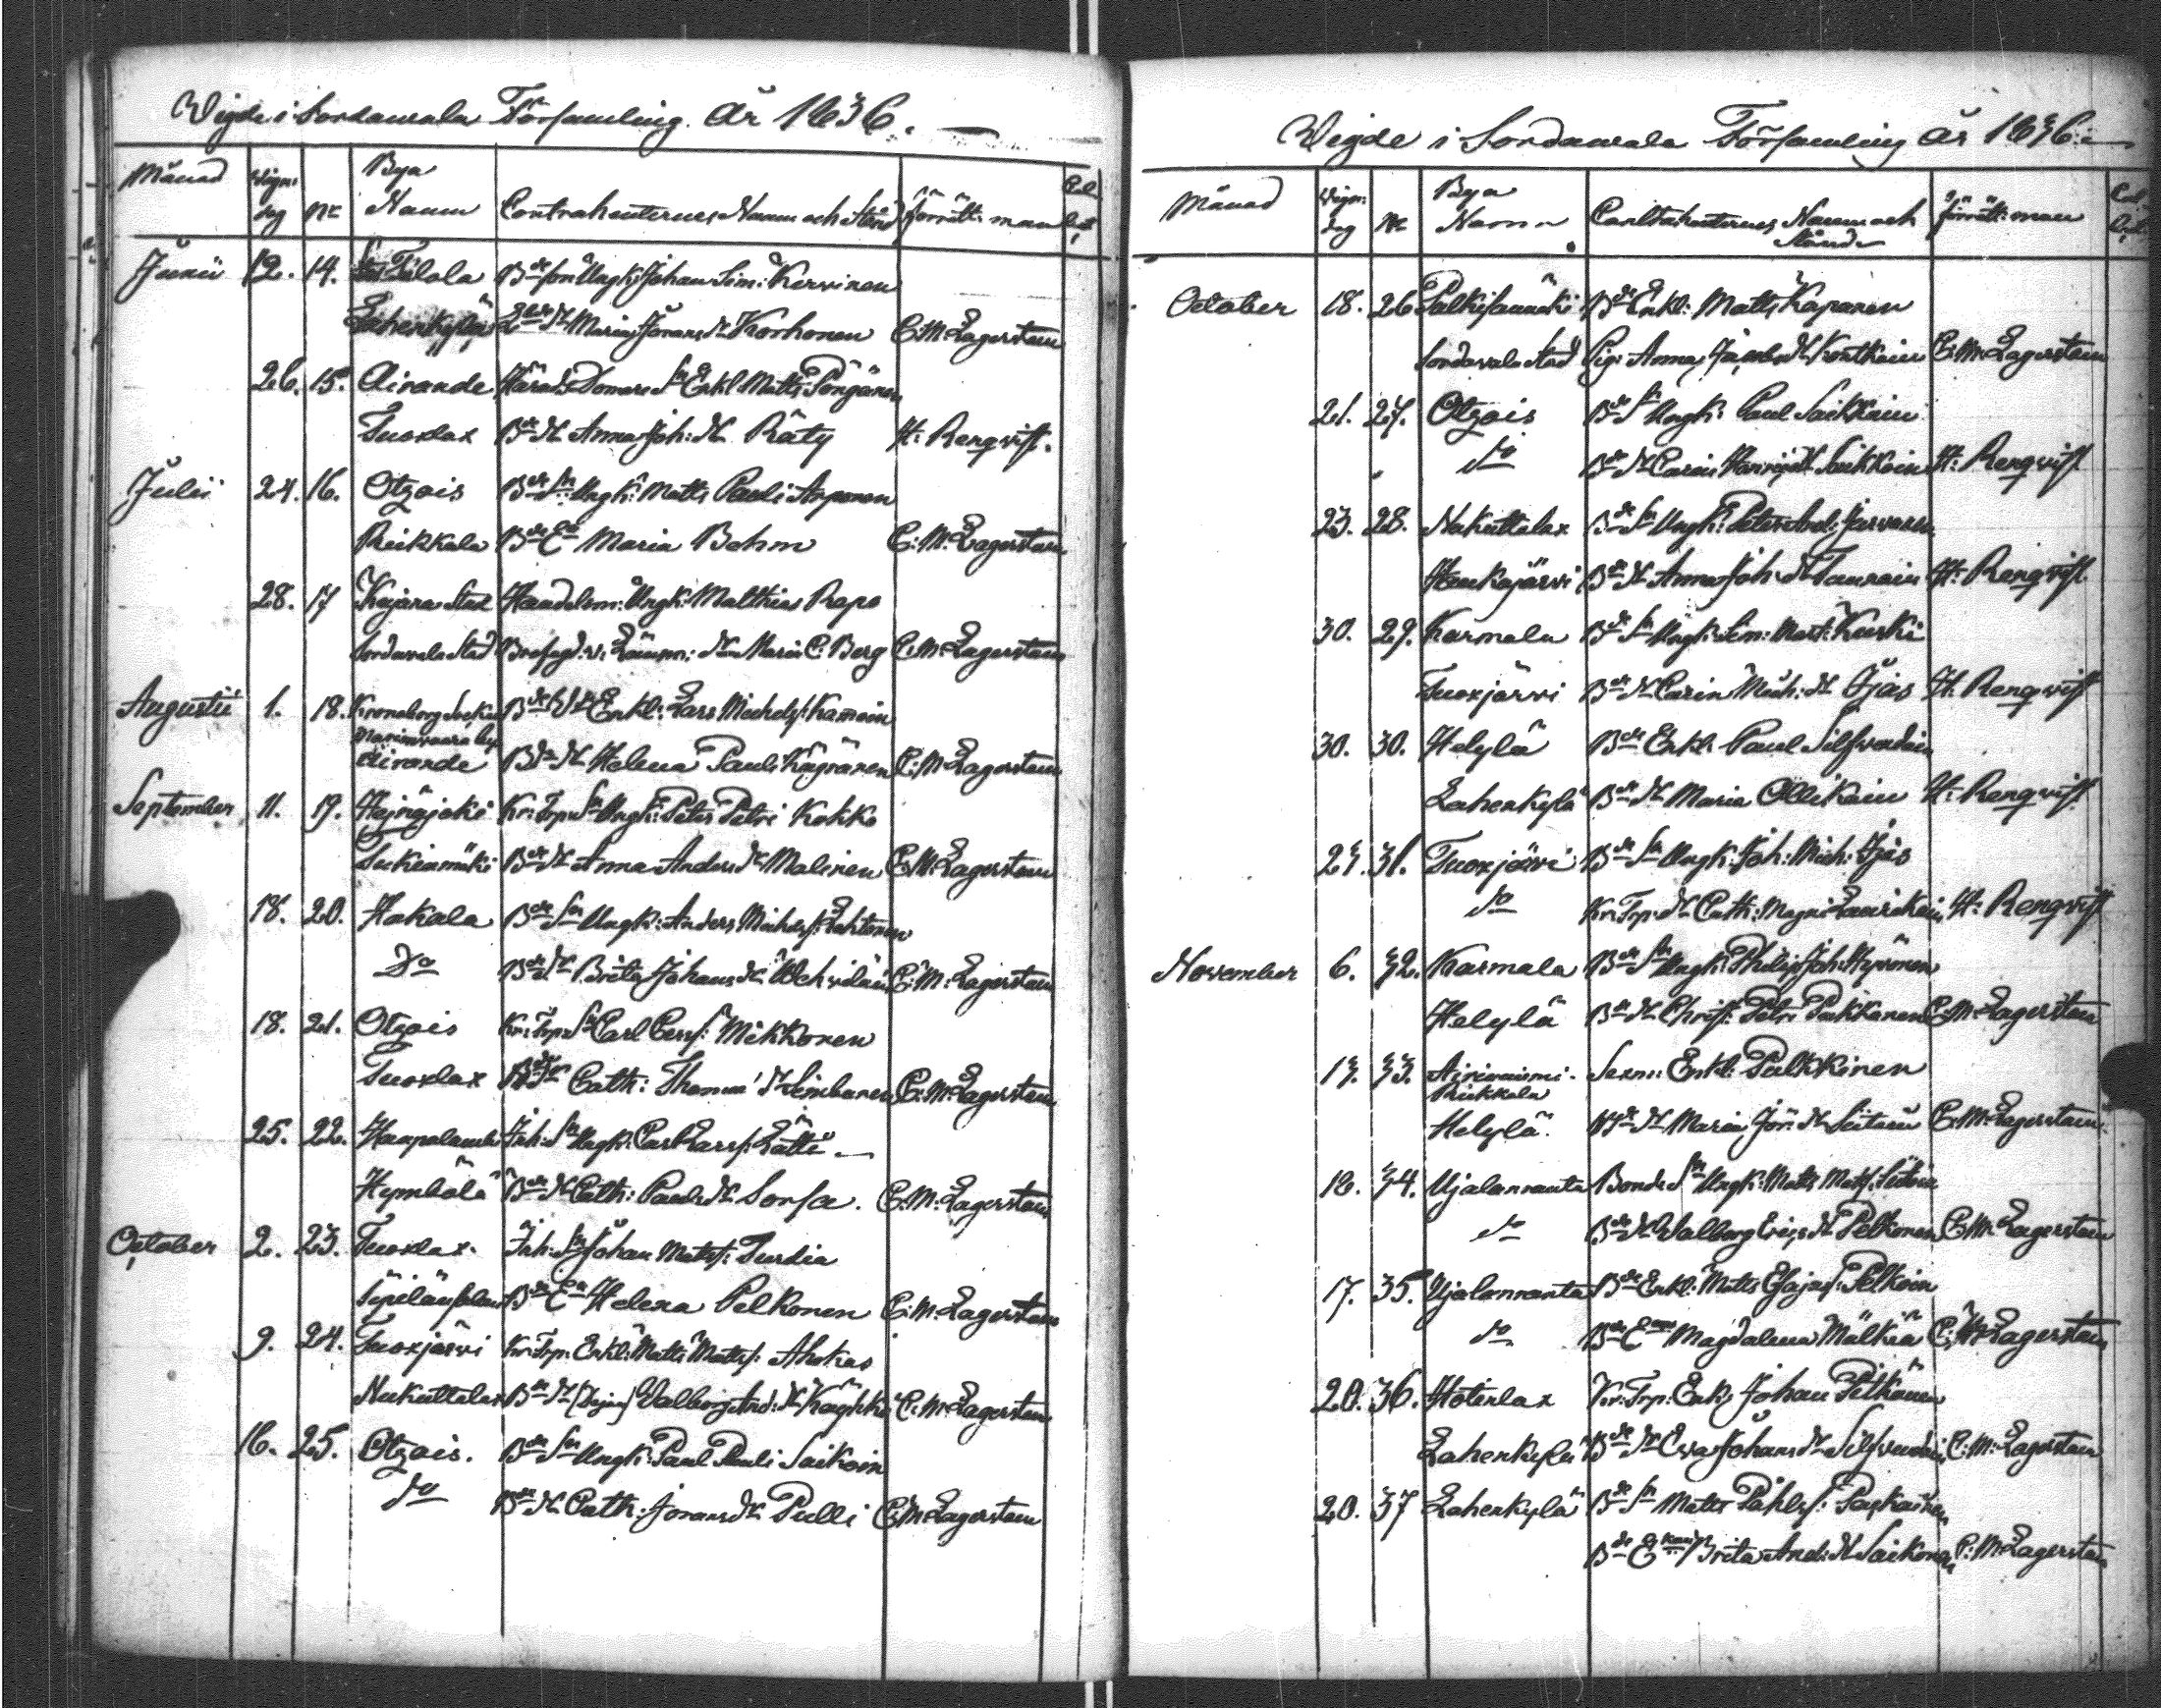 Wigde i Sordawala Församling. År 1836.
Månad Wign: dag No Bya Namn Contrahenternes Namn och Stånd förrätt: man
Junii 12. 14. Tilola Bde son Ungk: Johan Sim: Kervinen
Lahenkylä Maria Jörans dr Korhonen C:M:Lagerstam
26. 15. Airande Härads Domare Sn Enkl Matts Pöngänen
Tuoxlax Bde dr Anna Joh: dr Räty H: Renqvist.
Julii 24. 16. Otzois Bde Sn Ungk: Matts Pauli Asponen
Riekkala Bde Ea Maria Bohm C:M:Lagerstam
28. 17 Kajana Stad Handelsm: Ungk: Matthias Rapo
Sordavala Stad Maria C: Berg C:M:Lagerstam
Augusti 1. 18. Kroneborg Socken Enkl: Lars Michelss:
Airande Bde dr Helena Pauls C:M:Lagerstam
September 11. 19. Kr: Trp: Sn Ungk: Peter Petri Kokko
Bde dr Anna Anders dr Malinen C:M:Lagerstam
18. 20. Hakala Bde Sn Ungk: Anders Michelss: Lahtonen
Do Bde dr Brita Johans dr C:M:Lagerstam
18. 21. Otzois Kr: Trp: Sn Carl Carss: Mikkonen
Tuoxlax Cath: Thomæ dr C:M:Lagerstam
25. 22. Inh: Sn Ungk: Carl Larss: Lätti
Hymbölä Bde dr Cath: Pauls dr Sorsa. C:M:Lagerstam
October 2. 23. Tuoxlax. Inh: Sn Johan Matss: Turdia
Bde Ea Helena Pelkonen C:M:Lagerstam
9. 24. Tuoxjärvi Kr: Trp: Enkl: Matts Mattss: Ahokas
Nukuttalax Bde dr (Pigan) Valborg And: dr Käyhkö C:M:Lagerstam
16. 25. Otzois. Bde Sn Ungk: Paul Pauli Saikoin
do Bde dr Cath: Jörans dr Pulli C:M:Lagerstam
Wigde i Sordawala Församling år 1836.
Månad Wign: dag No Bya Namn Contrahenternes Namn och Stånd förrätt: man
October 18. 26 Palkisaunuki Bde Enkl: Matts Kaparen
Sordavala Stad Pig: Anna Jacobs dr Kontkain C:M:Lagerstam
21. 27. Otzois Bde Sn Ungk: Paul Saikkain
do Bde dr Carin dr Saikkoin H: Renqvist
23. 28. Nukuttalax Bde Sn Ungk: Peter
Haukajärvi Bde dr Anna Joh: dr Taurain H: Renqvist
30. 29. Karmala Bde Sn Ungk: Sim: Mart: Kurki
Tuoxjärvi Bde dr Carin Mich: dr Ojas H: Renqvist
30. 30. Helylä Bde Enkl: Paul Silfvendoin
Lahenkylä Bde dr Maria Ollikain H: Renqvist
23. 31. Tuoxjärvi Bde Sn Ungk: Joh: Mich: Ijäs
do Kr: Trp: dr Cath: Magni Laurikain H: Renqvist
November 6. 32. Karmala Bde Sn Ungk: Philip Joh: Hyvönen
Helylä Bde dr Christ: Petri Pukkanen C:M:Lagerstam
13. 33. Riekkala Enkl: Pulkkinen
Helylä. Bde dr Maria Jör: dr Siitain C:M:Lagerstam
13. 34. Ujalanranta Bonde Sn Ungk: Matts Mats: Siitoin
do Bde dr Walborg Erics dr Pelkonen C:M:Lagerstam
17. 35. Ujalanranta Bde Enkl: Matts Esajæs: Pelkoin
do Bde Ean Magdalena Mälkiä C:M:Lagerstam
20. 36. Hotinlax Kr: Trp: Enkl: Johan Pitkänen
Lahenkylä Bde dr Eva Johans dr C:M:Lagerstam
20. 37 Lahenkylä Bde Sn Matts Påhlss: Paskainen
Bde Brita And: dr Saikonen C:M:Lagerstam